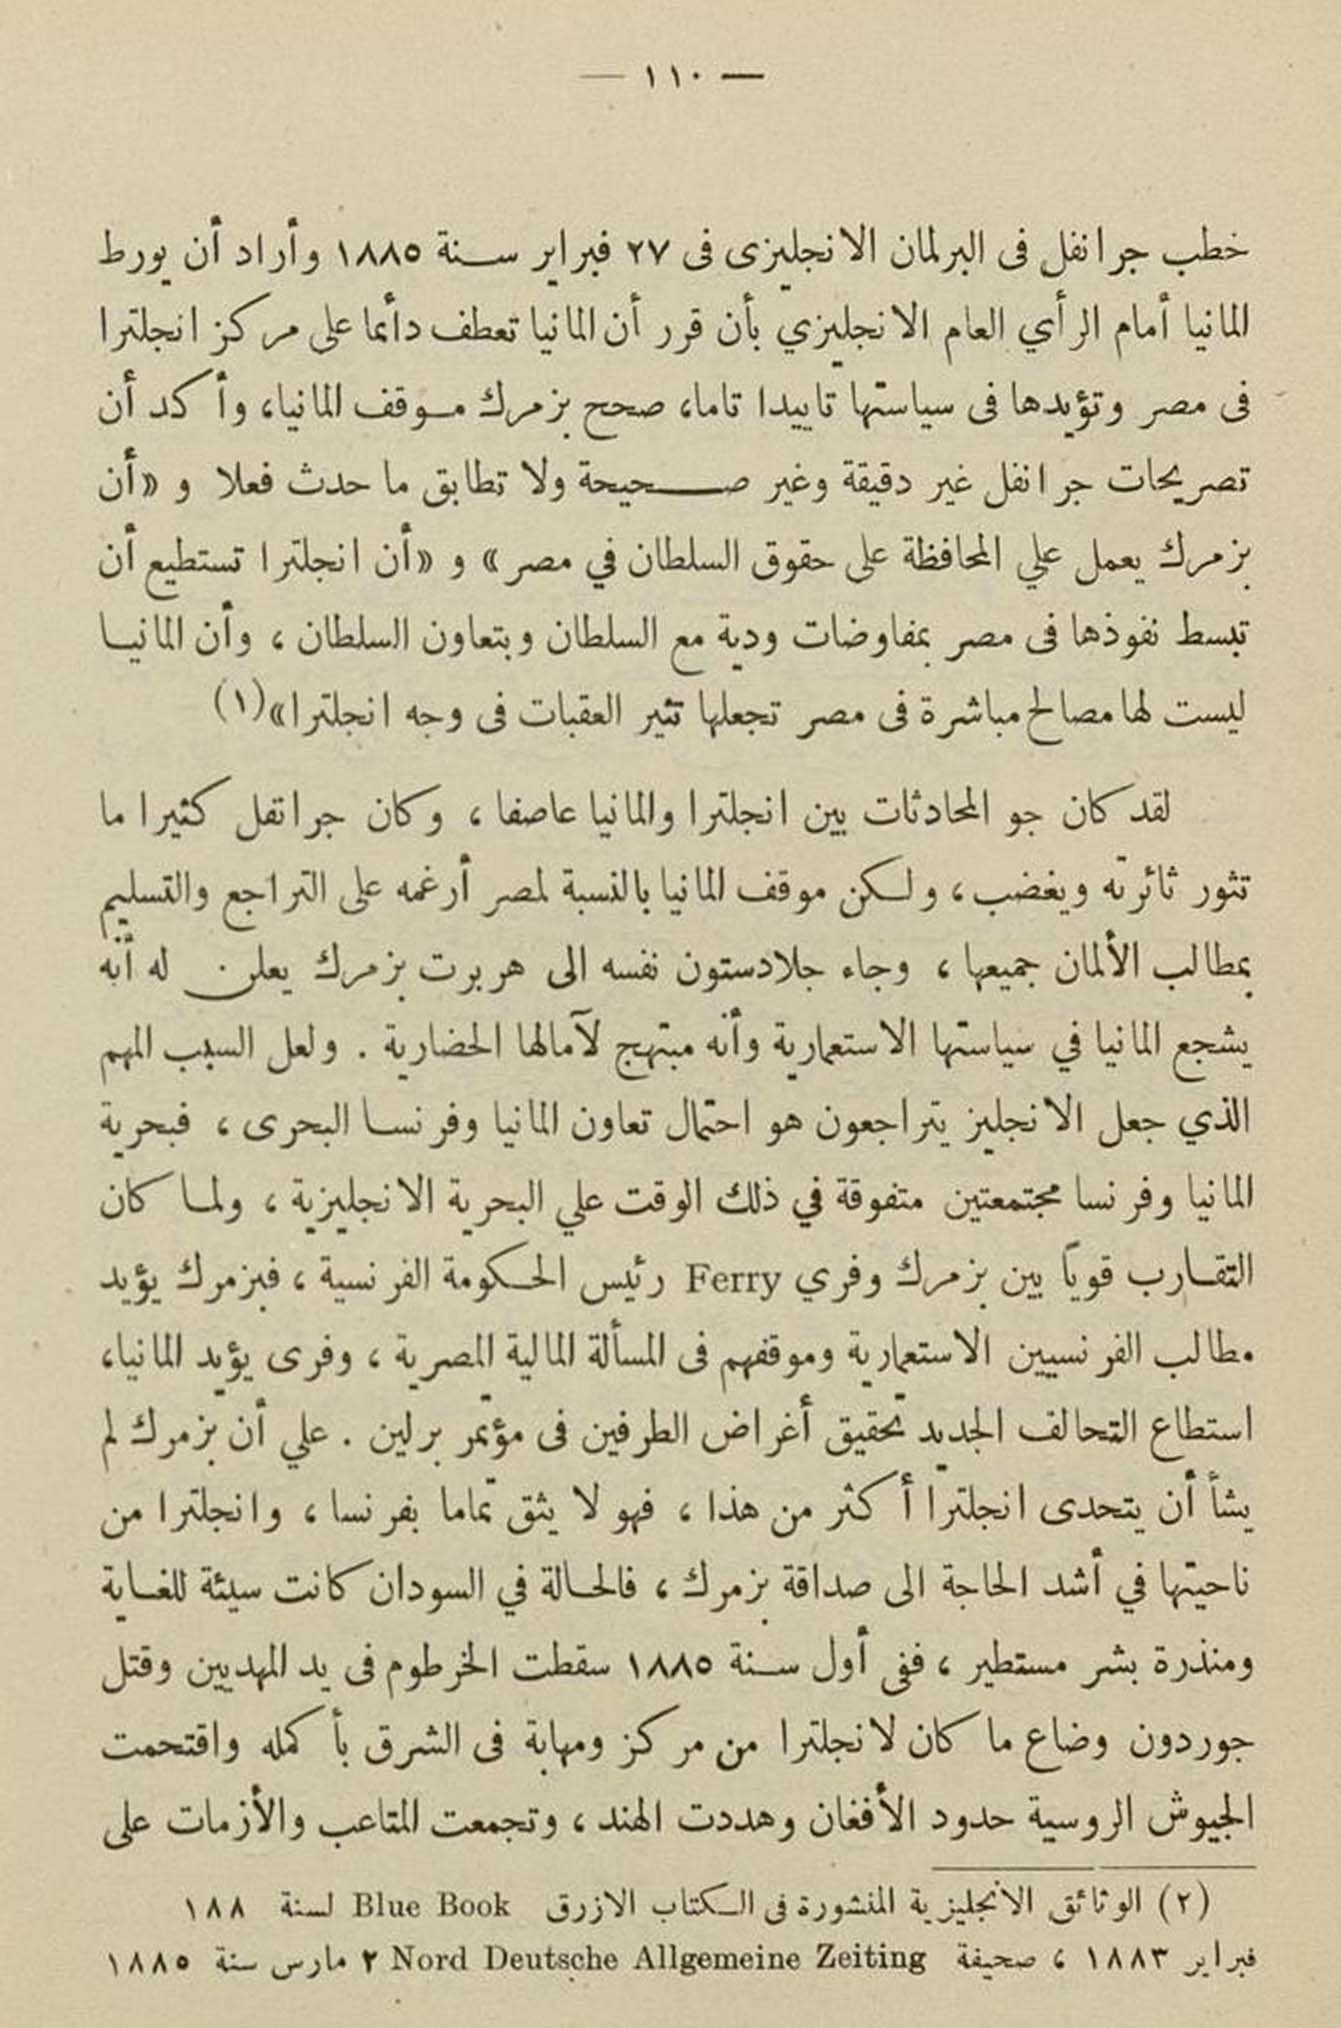 — ١١٠ —
خطب جرانفل فى البرلمان الانجليزى فى ٢٧ فبراير سنة ١٨٨٥ وأراد أن يورط
المانيا أمام الرأي العام الانجليزي بأن قرر أن المانيا تعطف دأئما على مركز انجلترا
فى مصر وتؤيدها فى سياستها تاييدا تاما، صحح بزمرك موقف المانيا، وأكد أن
تصريحات جرانفل غير دقيقة وغير صحيحة ولا تطابق ما حدث فعلا و «أن
بزمرك يعمل علي المحافظة على حقوق السلطان في مصر» و «أن انجلترا تستطيع أن
تبسط نفوذها فى مصر بمفاوضات ودية مع السلطان وبتعاون السلطان ، وأن المانيا
ليست لها مصالح مباشرة فى مصر تجعلها تثير العقبات فى وجه انجلترا»(١)
لقد كان جو المحادثات بين انجلترا والمانيا عاصفا ، وكان جراتفل كثيرا ما
تثور ثائرته ويغضب ، ولكن موقف المانيا بالنسبة لمصر أرغمه على التراجع والتسليم
بمطالب الألمان جميعها ، وجاء جلادستون نفسه الى هربرت بزمرك يعلن له أنه
يشجع المانيا في سياستها الاستعمارية وأنه مبتهج لآمالها الحضارية . ولعل السبب المهم
الذي جعل الانجليز يتراجعون هو احتمال تعاون المانيا وفرنسا البحرى ، فبحرية
المانيا وفرنسا مجتمعتين متفوقة في ذلك الوقت علي البحرية الانجليزية ، ولما كان
التقارب قوياً بين بزمرك وفري Ferry رئيس الحكومة الفرنسية ، فبزمرك يؤيد
مطالب الفرنسيين الاستعمارية وموقفهم فى المسألة المالية المصرية ، وفرى يؤيد المانيا،
استطاع التحالف الجديد تحقيق أغراض الطرفين فى مؤتمر برلين . علي أن بزمرك لم
يشأ أن يتحدى انجلترا أكثر من هذا ، فهو لا يثق تماما بفرنسا ، وانجلترا من
ناحيتها في أشد الحاجة الى صداقة بزمرك ، فالحالة في السودان كانت سيئة للغاية
ومنذرة بشر مستطير ، ففى أول سنة ١٨٨٥ سقطت الخرطوم فى يد المهديين وقتل
جوردون وضاع ما كان لانجلترا من مركز ومهابة فى الشرق بأكمله واقتحمت
الجيوش الروسية حدود الأفغان وهددت الهند ، وتجمعت المتاعب والأزمات على
(٢) الوثائق الانجليزية المنشورة فى الكتاب الازرق Blue Book لسنة ١٨٨
فبراير ١٨٨٣ ، صحيفة Nord Deutsche Allgemeine Zeiting ٢ مارس سنة ١٨٨٥